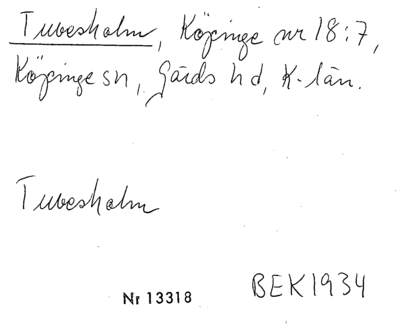 Tuvesholm, Köpinge nr 18:7,
Köpinge sn, Gärds hd, K-län.
Tuvesholm
Nr 13318
BEK1934